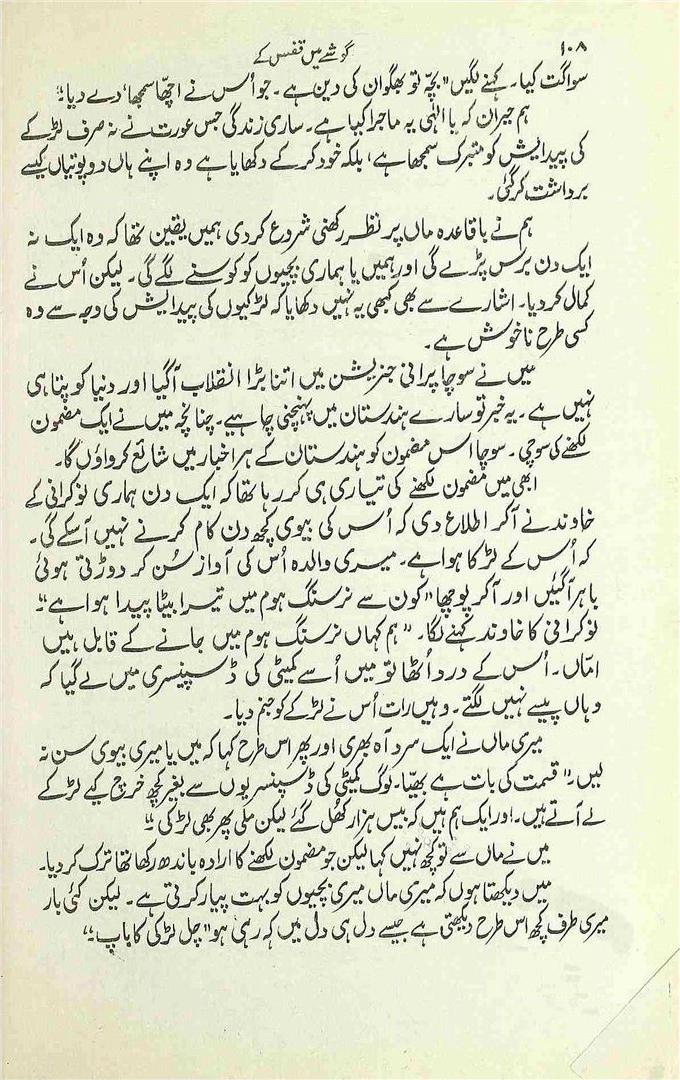 ۱۰۸
گوشے میں قفس کے
سواگت کیا۔ کہنے لگیں "بچہ تو بھگوان کی دین ہے۔ جو اُس نے اچھا سمجھا، دے دیا"
ہم حیران کہ یا الٰہی یہ ماجرا کیا ہے۔ ساری زندگی جس عورت نے نہ صرف لڑکے
کی پیدایش کو متبرک سمجھا ہے، بلکہ خود کر کے دکھایا ہے وہ اپنے ہاں دو پوتیاں کیسے
برداشت کر گئی۔
ہم نے باقاعدہ ماں پر نظر رکھنی شروع کر دی ہمیں یقین تھا کہ وہ ایک نہ
ایک دن برس پڑے گی اور ہمیں یا ہماری بچیوں کو کوسنے لگے گی۔ لیکن اُس نے
کمال کر دیا۔ اشارے سے بھی کبھی یہ نہیں دکھایا کہ لڑکیوں کی پیدایش کی وجہ سے وہ
کسی طرح ناخوش ہے۔
میں نے سوچا پرانی جنریشن میں اتنا بڑا انقلاب آگیا اور دنیا کو پتا ہی
نہیں ہے۔ یہ خبر تو سارے ہندستان میں پہنچنی چاہیے۔ چنانچہ میں نے ایک مضمون
لکھنے کی سوچی۔ سوچا اس مضمون کو ہندستان کے ہر اخبار میں شائع کرواؤں گا۔
ابھی میں مضمون لکھنے کی تیاری ہی کر رہا تھا کہ ایک دن ہماری نوکرانی کے
خاوند نے آکر اطلاع دی کہ اُس کی بیوی کچھ دن کام کرنے نہیں آسکے گی۔
کہ اُس کے لڑکا ہوا ہے۔ میری والدہ اُس کی آواز سُن کر دوڑتی ہوئی
باہر آگئیں اور آکر پوچھا "کون سے نرسنگ ہوم میں تیرا بیٹا پیدا ہوا ہے"
نوکرانی کا خاوند کہنے لگا۔ "ہم کہاں نرسنگ ہوم میں جانے کے قابل ہیں
امّاں۔ اُس کے درد اُٹھا تو میں اُسے کمیٹی کی ڈسپنسری میں لے گیا کہ
وہاں پیسے نہیں لگتے۔ وہیں رات اُس نے لڑکے کو جنم دیا۔
میری ماں نے ایک سرد آہ بھری اور پھر اس طرح کہا کہ میں یا میری بیوی سن نہ
لیں۔ "قسمت کی بات ہے بھیّا۔ لوگ کمیٹی کی ڈسپنسریوں سے بغیر کچھ خرچ کیے لڑکے
لے آتے ہیں۔ اور ایک ہم ہیں کہ بیس ہزار کھُل گئے لیکن ملی پھر بھی لڑکی"
میں نے ماں سے تو کچھ نہیں کہا لیکن جو مضمون لکھنے کا ارادہ باندھ رکھا تھا ترک کر دیا۔
میں دیکھتا ہوں کہ میری ماں میری بچیوں کو بہت پیار کرتی ہے۔ لیکن کئی بار
میری طرف کچھ اس طرح دیکھتی ہے جیسے دل ہی دل میں کہہ رہی ہو "چل لڑکی کا باپ"